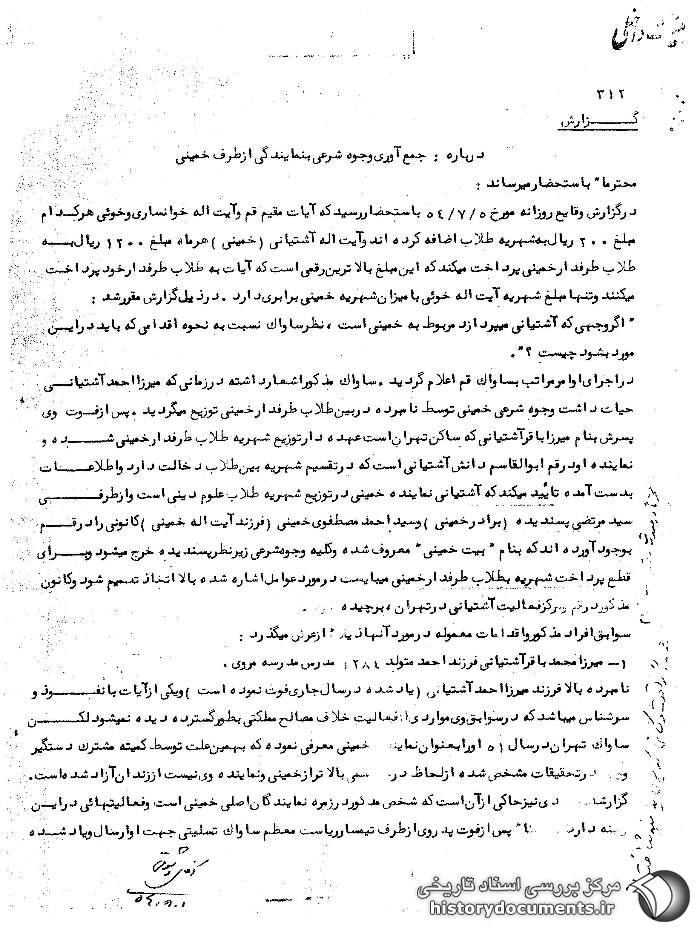 ۳۱۲
گزارش
درباره : جمع آوری وجوه شرعی بنمایندگی ازطرف خمینی
محترما" باستحضار میرساند :
درگزارش وقایع روزانه مورخ ۵۴/۷/۵ باستحضار رسید که آیات مقیم قم وآیت اله خوانساری وخوئی هرکدام
مبلغ ۲۰۰ ریال به شهریه طلاب اضافه کرده اند وآیت اله آشتیانی (خمینی) هرماه مبلغ ۱۲۰۰ ریال به
طلاب طرفدار خمینی پرداخت میکند که این مبلغ بالاترین رقمی است که آیات به طلاب طرفدار خود پرداخت
میکنند وتنها مبلغ شهریه آیت اله خوئی با میزان شهریه خمینی برابری دارد . درذیل گزارش مقررشد :
"اگر وجهی که آشتیانی میپردازد مربوط به خمینی است ، نظر ساواک نسبت به نحوه اقدامی که باید دراین
مورد بشود چیست ؟" .
دراجرای اوامر مراتب بساواک قم اعلام گردید . ساواک مذکور اشعار داشته درزمانی که میرزا احمد آشتیانی
حیات داشت وجوه شرعی خمینی توسط نامبرده دربین طلاب طرفدار خمینی توزیع میگردید . پس ازفوت وی
پسرش بنام میرزا باقر آشتیانی که ساکن تهران است عهده دار توزیع شهریه طلاب طرفدار خمینی شده و
نماینده اودرقم ابوالقاسم دانش آشتیانی است که درتقسیم شهریه بین طلاب دخالت دارد واطلاعات
بدست آمده تأیید میکند که آشتیانی نماینده خمینی درتوزیع شهریه طلاب علوم دینی است وازطرفی
سید مرتضی پسندیده (برادر خمینی) وسید احمد مصطفوی خمینی (فرزند آیت اله خمینی) کانونی رادرقم
بوجود آورده اند که بنام "بیت خمینی" معروف شده وکلیه وجوه شرعی زیرنظر پسندیده خرج میشود وبرای
قطع پرداخت شهریه بطلاب طرفدار خمینی میبایست درمورد عوامل اشاره شده بالا اتخاذ تصمیم شود وکانون
مذکور درقم ومرکز فعالیت آشتیانی درتهران ، برچیده
سوابق افراد مذکور واقدامات معموله درمورد آنها ذیلا" ازعرض میگذرد :
۱- میرزا محمد باقر آشتیانی فرزند احمد متولد ۱۲۸۴ مدرس مدرسه مروی .
نامبرده بالا فرزند میرزا احمد آشتیانی (یاد شده درسال جاری فوت نموده است) ویکی ازآیات با نفوذ و
سرشناس میباشد که درسوابق وی مواردی از فعالیت خلاف مصالح مملکتی بطور گسترده دیده نمیشود لکن
ساواک تهران درسال ۵۱ اورا بعنوان نماینده خمینی معرفی نموده که بهمین علت توسط کمیته مشترک دستگیر
ودرتحقیقات مشخص شده ازلحاظ بالاتر ازخمینی ونماینده وی نیست اززندان آزاد شده است.
نیز حاکی ازآن است که شخص مذکور درزمره نمایندگان اصلی خمینی است وفعالیتهائی دراین
زمینه دارد پس ازفوت پدر وی ازطرف تیمسار ریاست معظم ساواک تسلیتی جهت او ارسال ویاد شده
مرکز بررسی اسناد تاریخی
historydocuments.ir